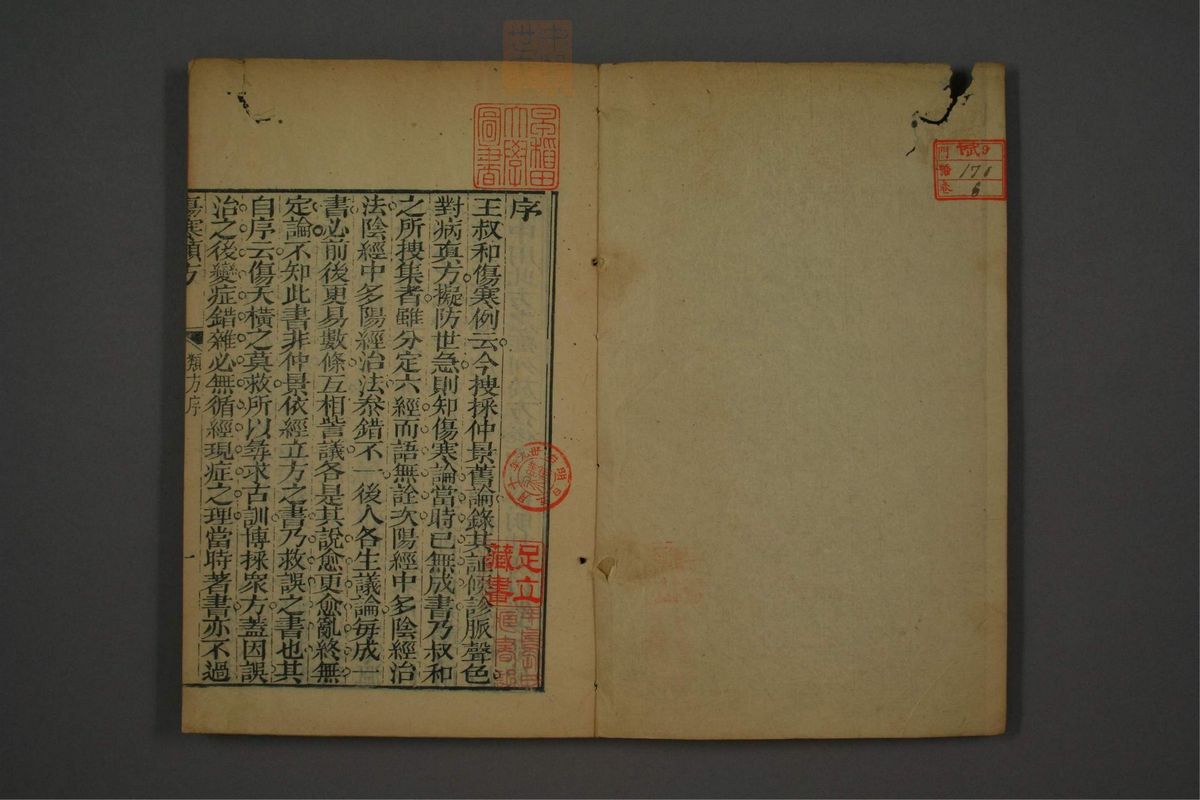 序
王叔和傷寒例云今搜採仲景舊論錄其證候診脈聲色
對病真方擬防世急則知傷寒論當時已無成書乃叔和
之所搜集者雖分定六經而語無詮次陽經中多陰經治
法陰經中多陽經治法叅錯不一後人各生議論每成一
書必前後更易數條互相訾議各是其說愈更愈亂終無
定論不知此書非仲景依經立方之書乃救誤之書也其
自序云傷夭橫之莫救所以尋求古訓博採眾方蓋因誤
治之後變症錯雜必無循經現症之理當時著書亦不過
傷寒類方
類方序
一
早稻田大學圖書
足立藏書
門
號
卷
9
171
6